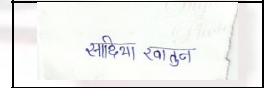 सादिया खातुन